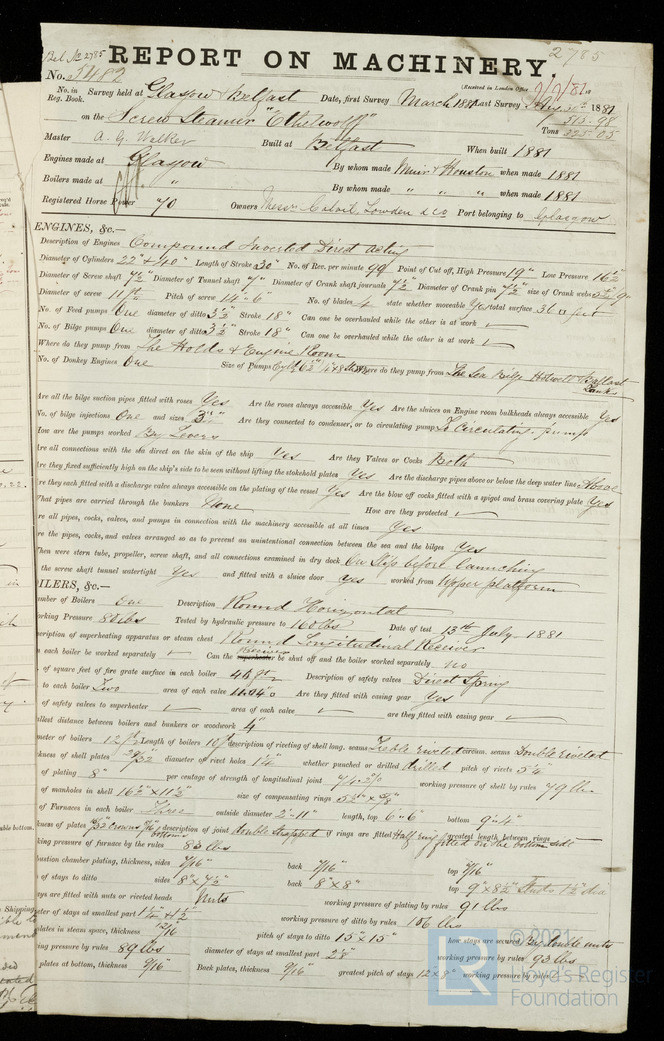 Bel No 2785
2785
REPORT ON MACHINERY
No. 2482
(Received in London Office
No. in Survey held at Glasgow & Belfast Date, first Survey March 1881 Last Survey 1881
Reg. Book.
on the Screw Steamer "Ethelwolf" Tons
Master A. G. Walker Built at Belfast When built 1881
Engines made at Glasgow By whom made Muir & Houston when made 1881
Boilers made at " By whom made " " " when made 1881
Registered Horse Power 70 Owners Lowden & Co Port belonging to Glasgow
ENGINES, &c.—
Description of Engines Compound Inverted Direct Acting
Diameter of Cylinders 22" & 40" Length of Stroke 30" No. of Rev. per minute 99 Point of Cut off, High Pressure 19" Low Pressure 16½"
Diameter of Screw shaft 7½" Diameter of Tunnel shaft 7" Diameter of Crank shaft journals 7½" Diameter of Crank pin 7½" size of Crank webs 9"
Diameter of screw 11 ft Pitch of screw 14"6" No. of blades 4 state whether moveable Yes total surface 36 feet
No. of Feed pumps One diameter of ditto 3½" Stroke 18" Can one be overhauled while the other is at work ✓
No. of Bilge pumps One diameter of ditto 3½" Stroke 18" Can one be overhauled while the other is at work ✓
Where do they pump from The Holds & Engine Room
No. of Donkey Engines One Size of Pumps Where do they pump from The Sea Bilge Hotwell & Ballast
Tanks
Are all the bilge suction pipes fitted with roses Yes Are the roses always accessible Yes Are the sluices on Engine room bulkheads always accessible Yes
No. of bilge injections One and sizes 3" Are they connected to condenser, or to circulating pump To Circulating pump
How are the pumps worked By Levers
Are all connections with the sea direct on the skin of the ship Yes Are they Valves or Cocks Both
Are they fixed sufficiently high on the ship's side to be seen without lifting the stokehold plates Yes Are the discharge pipes above or below the deep water line Above
Are they each fitted with a discharge valve always accessible on the plating of the vessel Yes Are the blow off cocks fitted with a spigot and brass covering plate Yes
What pipes are carried through the bunkers None How are they protected ✓
Are all pipes, cocks, valves, and pumps in connection with the machinery accessible at all times Yes
Are the pipes, cocks, and valves arranged so as to prevent an unintentional connection between the sea and the bilges Yes
When were stern tube, propeller, screw shaft, and all connections examined in dry dock On Slip before launching
Is the screw shaft tunnel watertight Yes and fitted with a sluice door Yes worked from Upper platform
BOILERS, &c.—
Number of Boilers One Description Round Horizontal
Working Pressure 80 lbs Tested by hydraulic pressure to 160 lbs Date of test 13th July 1881
Description of superheating apparatus or steam chest Round Longitudinal Receiver
Can each boiler be worked separately ✓ Can the superheater Receiver be shut off and the boiler worked separately no
No. of square feet of fire grate surface in each boiler 46 Description of safety valves Direct Spring
No. to each boiler Two area of each valve 11.04 Are they fitted with easing gear Yes
No. of safety valves to superheater ✓ area of each valve ✓ are they fitted with easing gear ✓
Smallest distance between boilers and bunkers or woodwork 4"
Diameter of boilers Length of boilers description of riveting of shell long. seams Treble riveted circum. seams Double riveted
Thickness of shell plates 29/32 diameter of rivet holes 1¼" whether punched or drilled drilled pitch of rivets 5¼"
Lap of plating 8" per centage of strength of longitudinal joint working pressure of shell by rules 79 lbs
Size of manholes in shell 16½" x 11½" size of compensating rings
No. of Furnaces in each boiler Three outside diameter 2'-11" length, top 6'6" bottom 9'-4"
Thickness of plates description of joint double strapped if rings are fitted Half ring fitted on the bottom side greatest length between rings
Working pressure of furnace by the rules 83 lbs
Combustion chamber plating, thickness, sides 7/16" back 7/16" top 7/16"
Pitch of stays to ditto sides 8" x 7½" back 8" x 8" top 9" x 8½" Stays 1½ dia
If stays are fitted with nuts or riveted heads Nuts working pressure of plating by rules 91 lbs
Diameter of stays at smallest part working pressure of ditto by rules 106 lbs
End plates in steam space, thickness 12/16 pitch of stays to ditto 15" x 15" how stays are secured By Double nuts
Working pressure by rules 89 lbs diameter of stays at smallest part working pressure by rules 93 lbs
Front plates at bottom, thickness 9/16" Back plates, thickness 9/16" greatest pitch of stays 12 x 8" working pressure by rules
© 2021
LR
Lloyd's Register
Foundation